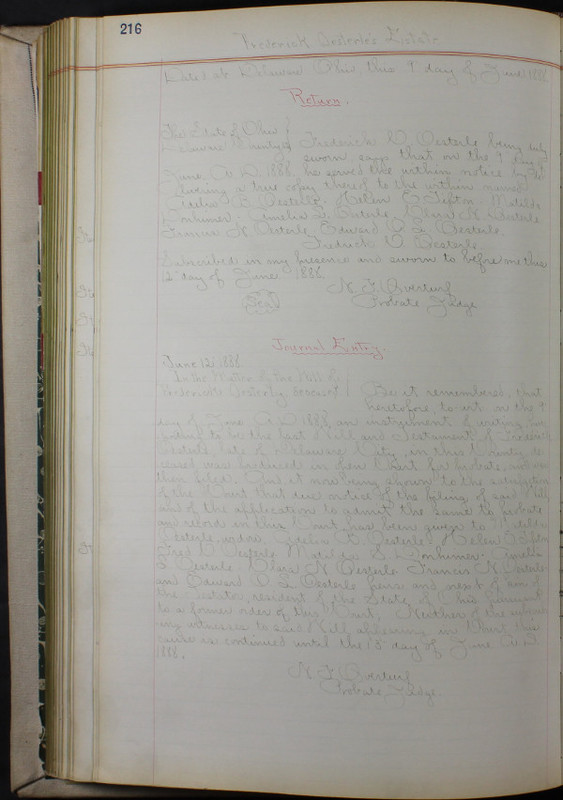 216
Frederick Oesterle's Estate
Dated at Delaware Ohio, this 9 day of June 1888
Return.
The State of Ohio
Delaware County Frederick O. Oesterle being duly
sworn says that on the 9 day of
June, A.D. 1888 he served the within notice by de-
livering a true copy thereof to the within named
B. Oesterle, Helen E. Tipton, Matilda
Amelia L. Oesterle, Clara N. Oesterle
Francis N. Oesterle, Edward O. L. Oesterle.
Fredrich O. Oesterle
Subscribed in my presence and sworn to before me this
12 day of June 1888.
N. F. Overturf
Seal Probate Judge
Journal Entry.
June 12, 1888.
In the Matter of the Will of
Frederick Oesterle, deceased Be it remembered, that
heretofore, to wit on the 9
day of June A.D. 1888, an instrument of writing, pur-
porting to be the last Will and Testament of Frederick
Oesterle, late of Delaware City, in this County de-
ceased was produced in open Court for probate, and was
then filed. And it now being shown to the satisfaction
of the Court that due notice of the filing of said Will
and of the application to admit the same to probate
and record in this Court, has been given to
Oesterle, widow, B. Oesterle, Helen E. Tipton
Fred O. Oesterle Matilda S. Amelia
L. Oesterle Clara N. Oesterle Francis N. Oesterle
and Edward O. L. Oesterle heirs and next of kin of
the Testator, resident of the State of Ohio pursuant
to a former order of this Court, Neither of the subscrib-
ing witnesses to said Will appearing in Court this
cause is continued until the 15 day of June A.D.
1888.
N. F. Overturf
Probate Judge.